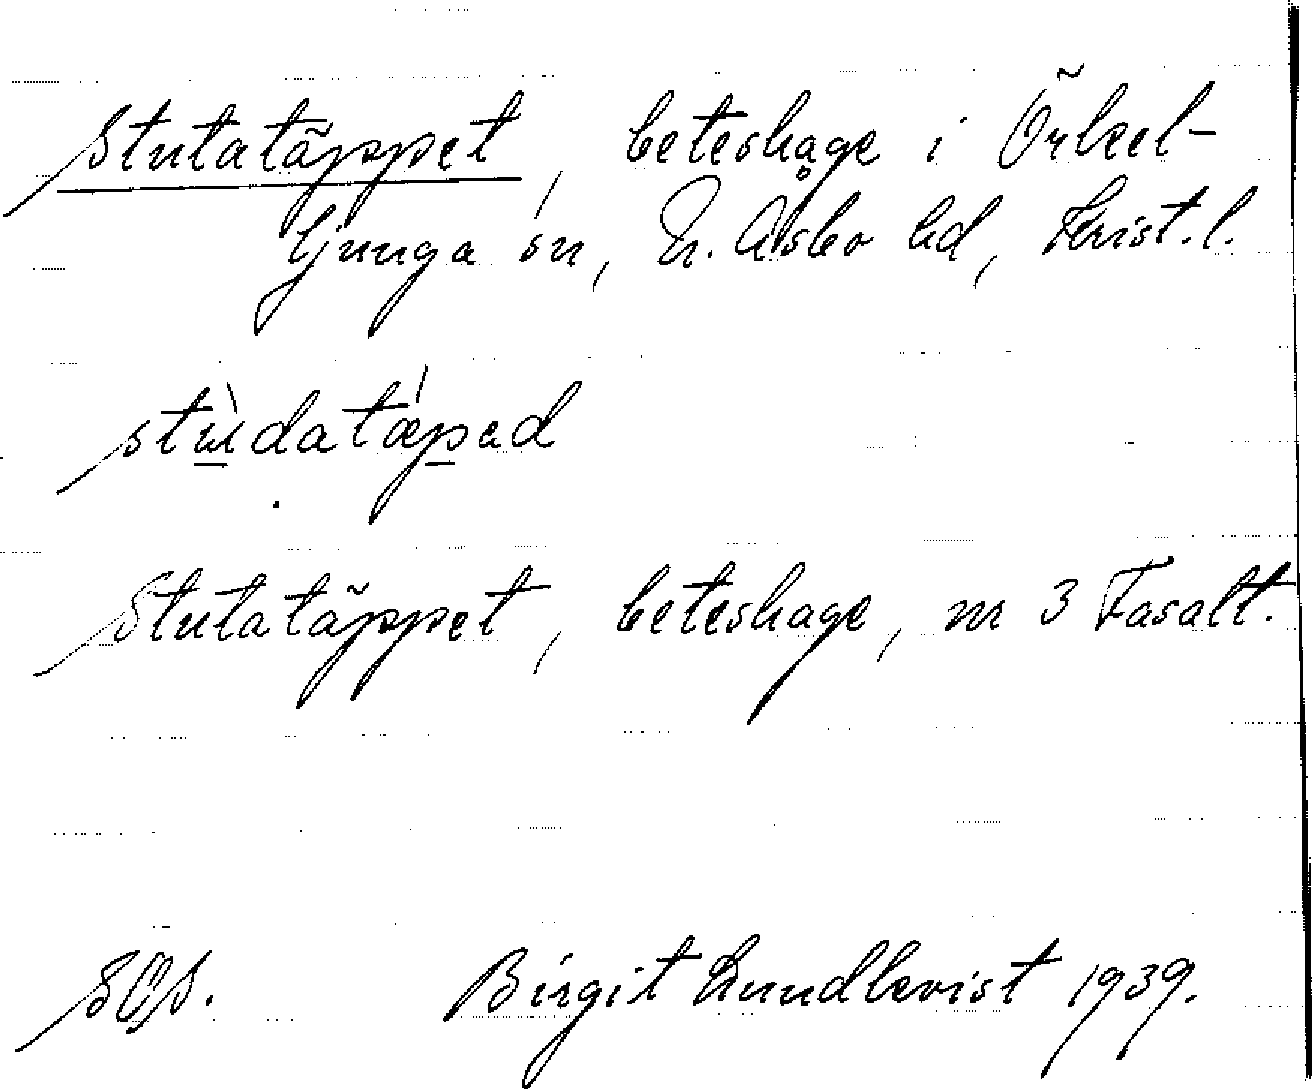 Stutatäppet, beteshage i Örkel-
ljunga sn, N. Åsbo hd, Krist. l.
stùdatápad
Stutatäppet, beteshage, nr 3 Fasalt.
SOS. Birgit Lundkvist 1939.